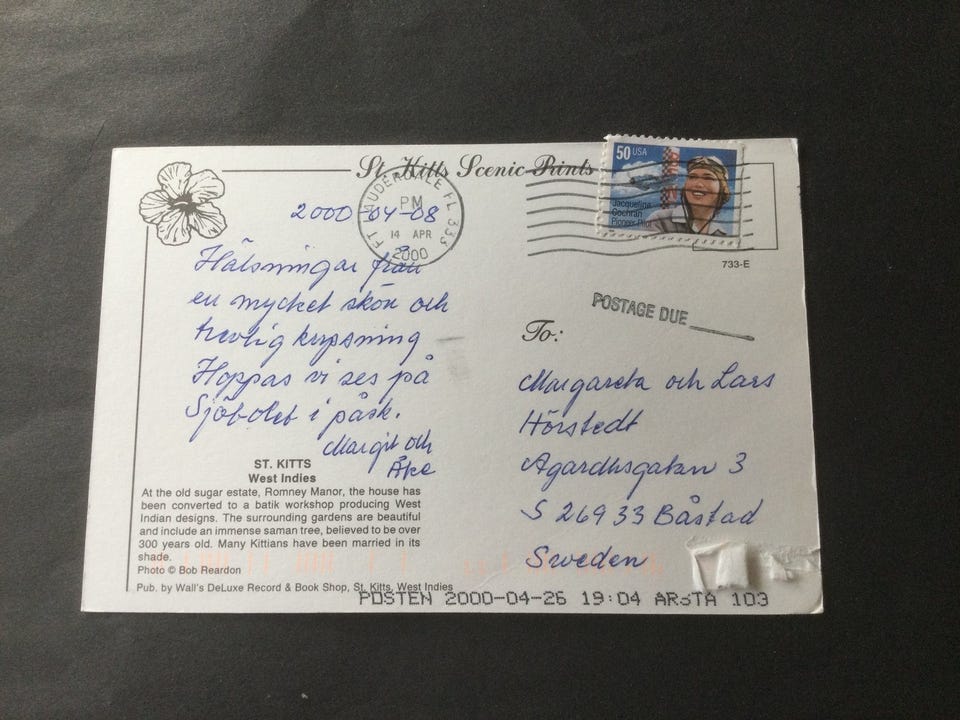 St. Kitts Scenic Prints
50 USA
Jacqueline
Cochran
Pioneer Pilot
733-E
FT LAUDERDALE FL 333
PM
14 APR
2000
POSTAGE DUE
2000-04-08
Hälsningar från
en mycket skön och
trevlig kryssning
Hoppas vi ses på
i påsk.
Margit och
Åke
To:
Margareta och Lars
Hörstedt
Agardhsgatan 3
S 269 33 Båstad
Sweden
ST. KITTS
West Indies
At the old sugar estate, Romney Manor, the house has
been converted to a batik workshop producing West
Indian designs. The surrounding gardens are beautiful
and include an immense saman tree, believed to be over
300 years old. Many Kittians have been married in its
shade.
Photo © Bob Reardon
Pub. by Wall's DeLuxe Record & Book Shop, St. Kitts, West Indies
POSTEN 2000-04-26 19:04 ARSTA 103